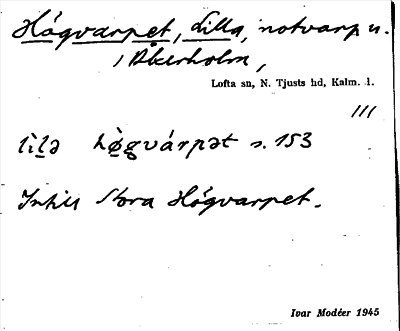 Högvarpet, Lilla, notvarp u.
/ Åkerholm,
Lofta sn, N. Tjusts hd, Kalm. l.
111
lìlə hø̀gvárpət s. 153
Intill Stora Högvarpet.
Ivar Modéer 1945